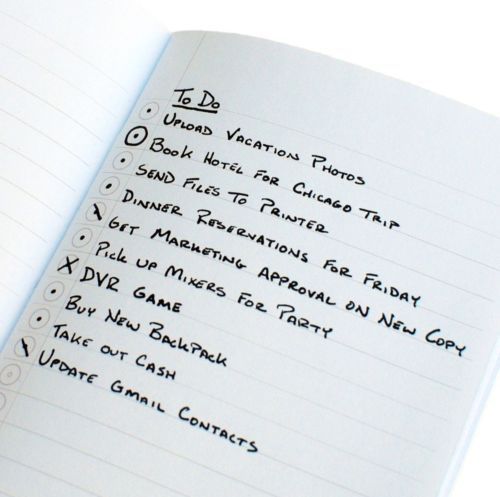 To Do
Upload Vacation Photos
Book Hotel For Chicago Trip
Send Files To Printer
Dinner Reservations For Friday
Get Marketing Approval on New Copy
Pick up Mixers For Party
DVR Game
Buy New Backpack
Take out Cash
Update Gmail Contacts